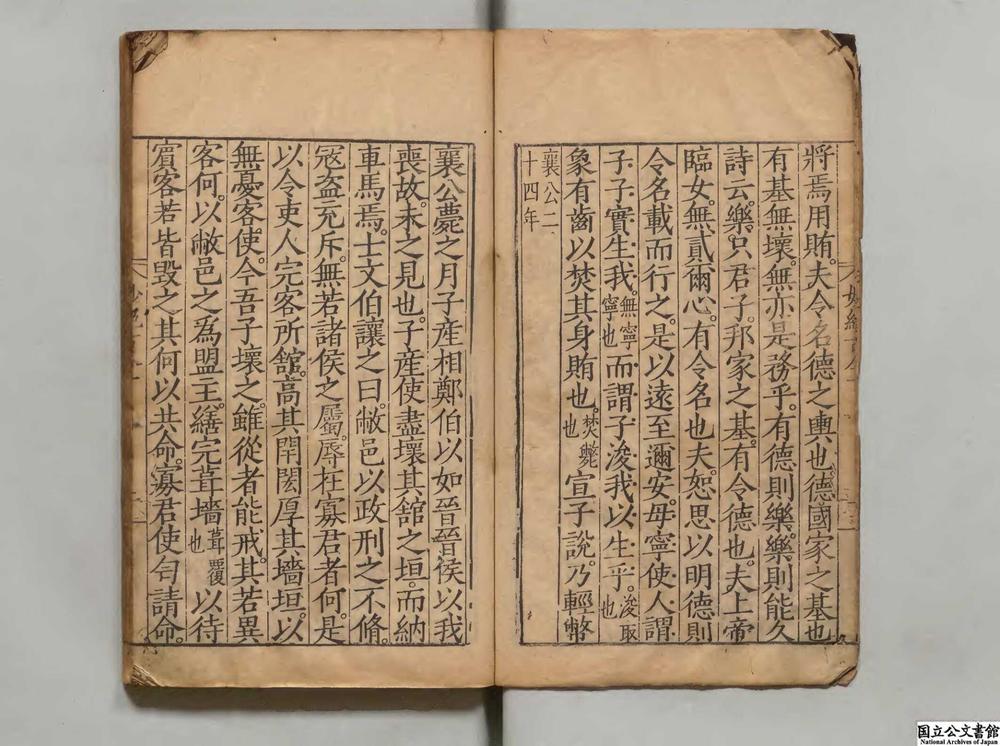 將焉用賄。夫令名德之輿也。德國家之基也
有基無壞。無亦是務乎。有德則樂。樂則能久
詩云。樂只君子。邦家之基。有令德也。夫上帝
臨女。無貳爾心。有令名也夫。恕思以明德則
令名載而行之。是以遠至邇安。毋寧使人謂
子子實生我。無寧寧也而謂子浚我以生乎。浚取也
象有齒以焚其身賄也。焚斃也宣子說。乃輕幣
襄公二十四年
襄公薨之月子產相鄭伯以如晉晉侯以我
喪故。未之見也。子產使盡壞其館之垣。而納
車馬焉。士文伯讓之曰。敝邑以政刑之不脩。
寇盜充斥。無若諸侯之屬。辱在寡君者何。是
以令吏人完客所館。高其閈閎厚其墻垣。以
無憂客使。今吾子壞之。雖從者能戒。其若異
客何。以敝邑之為盟主。繕完葺墻葺覆也以待
賓客若皆毀之。其何以共命。寡君使匄請命。
国立公文書館
National Archives of Japan